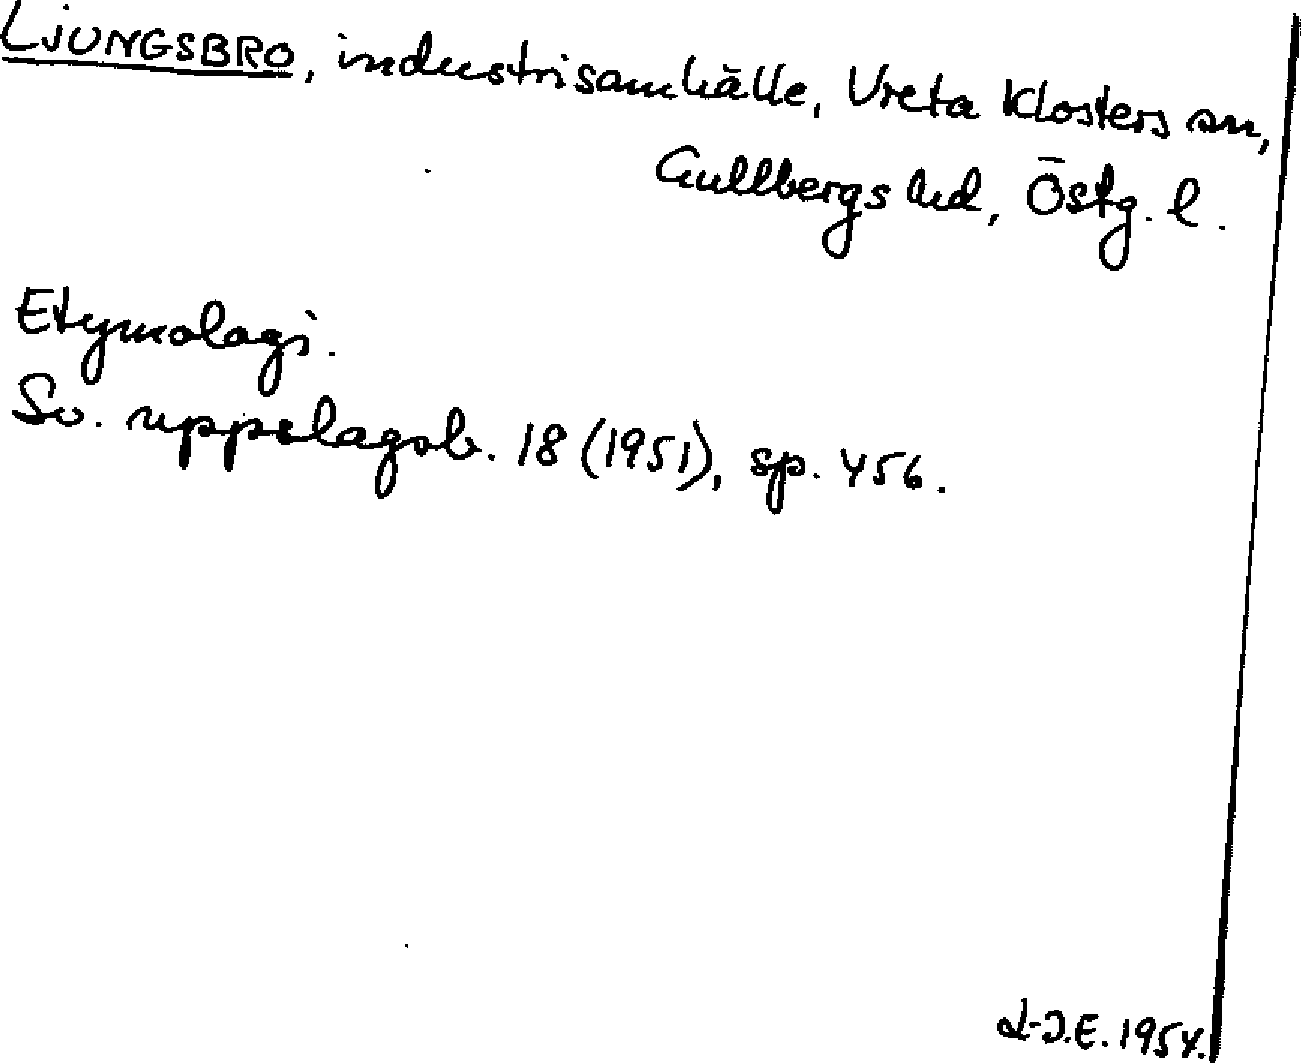 LJUNGSBRO, industrisamhälle, Vreta Klosters sn,
Gullbergs hd, Östg. l.
Etymologi.
Sv. uppslagsb. 18 (1951), sp. 456.
L-J.E. 1954.